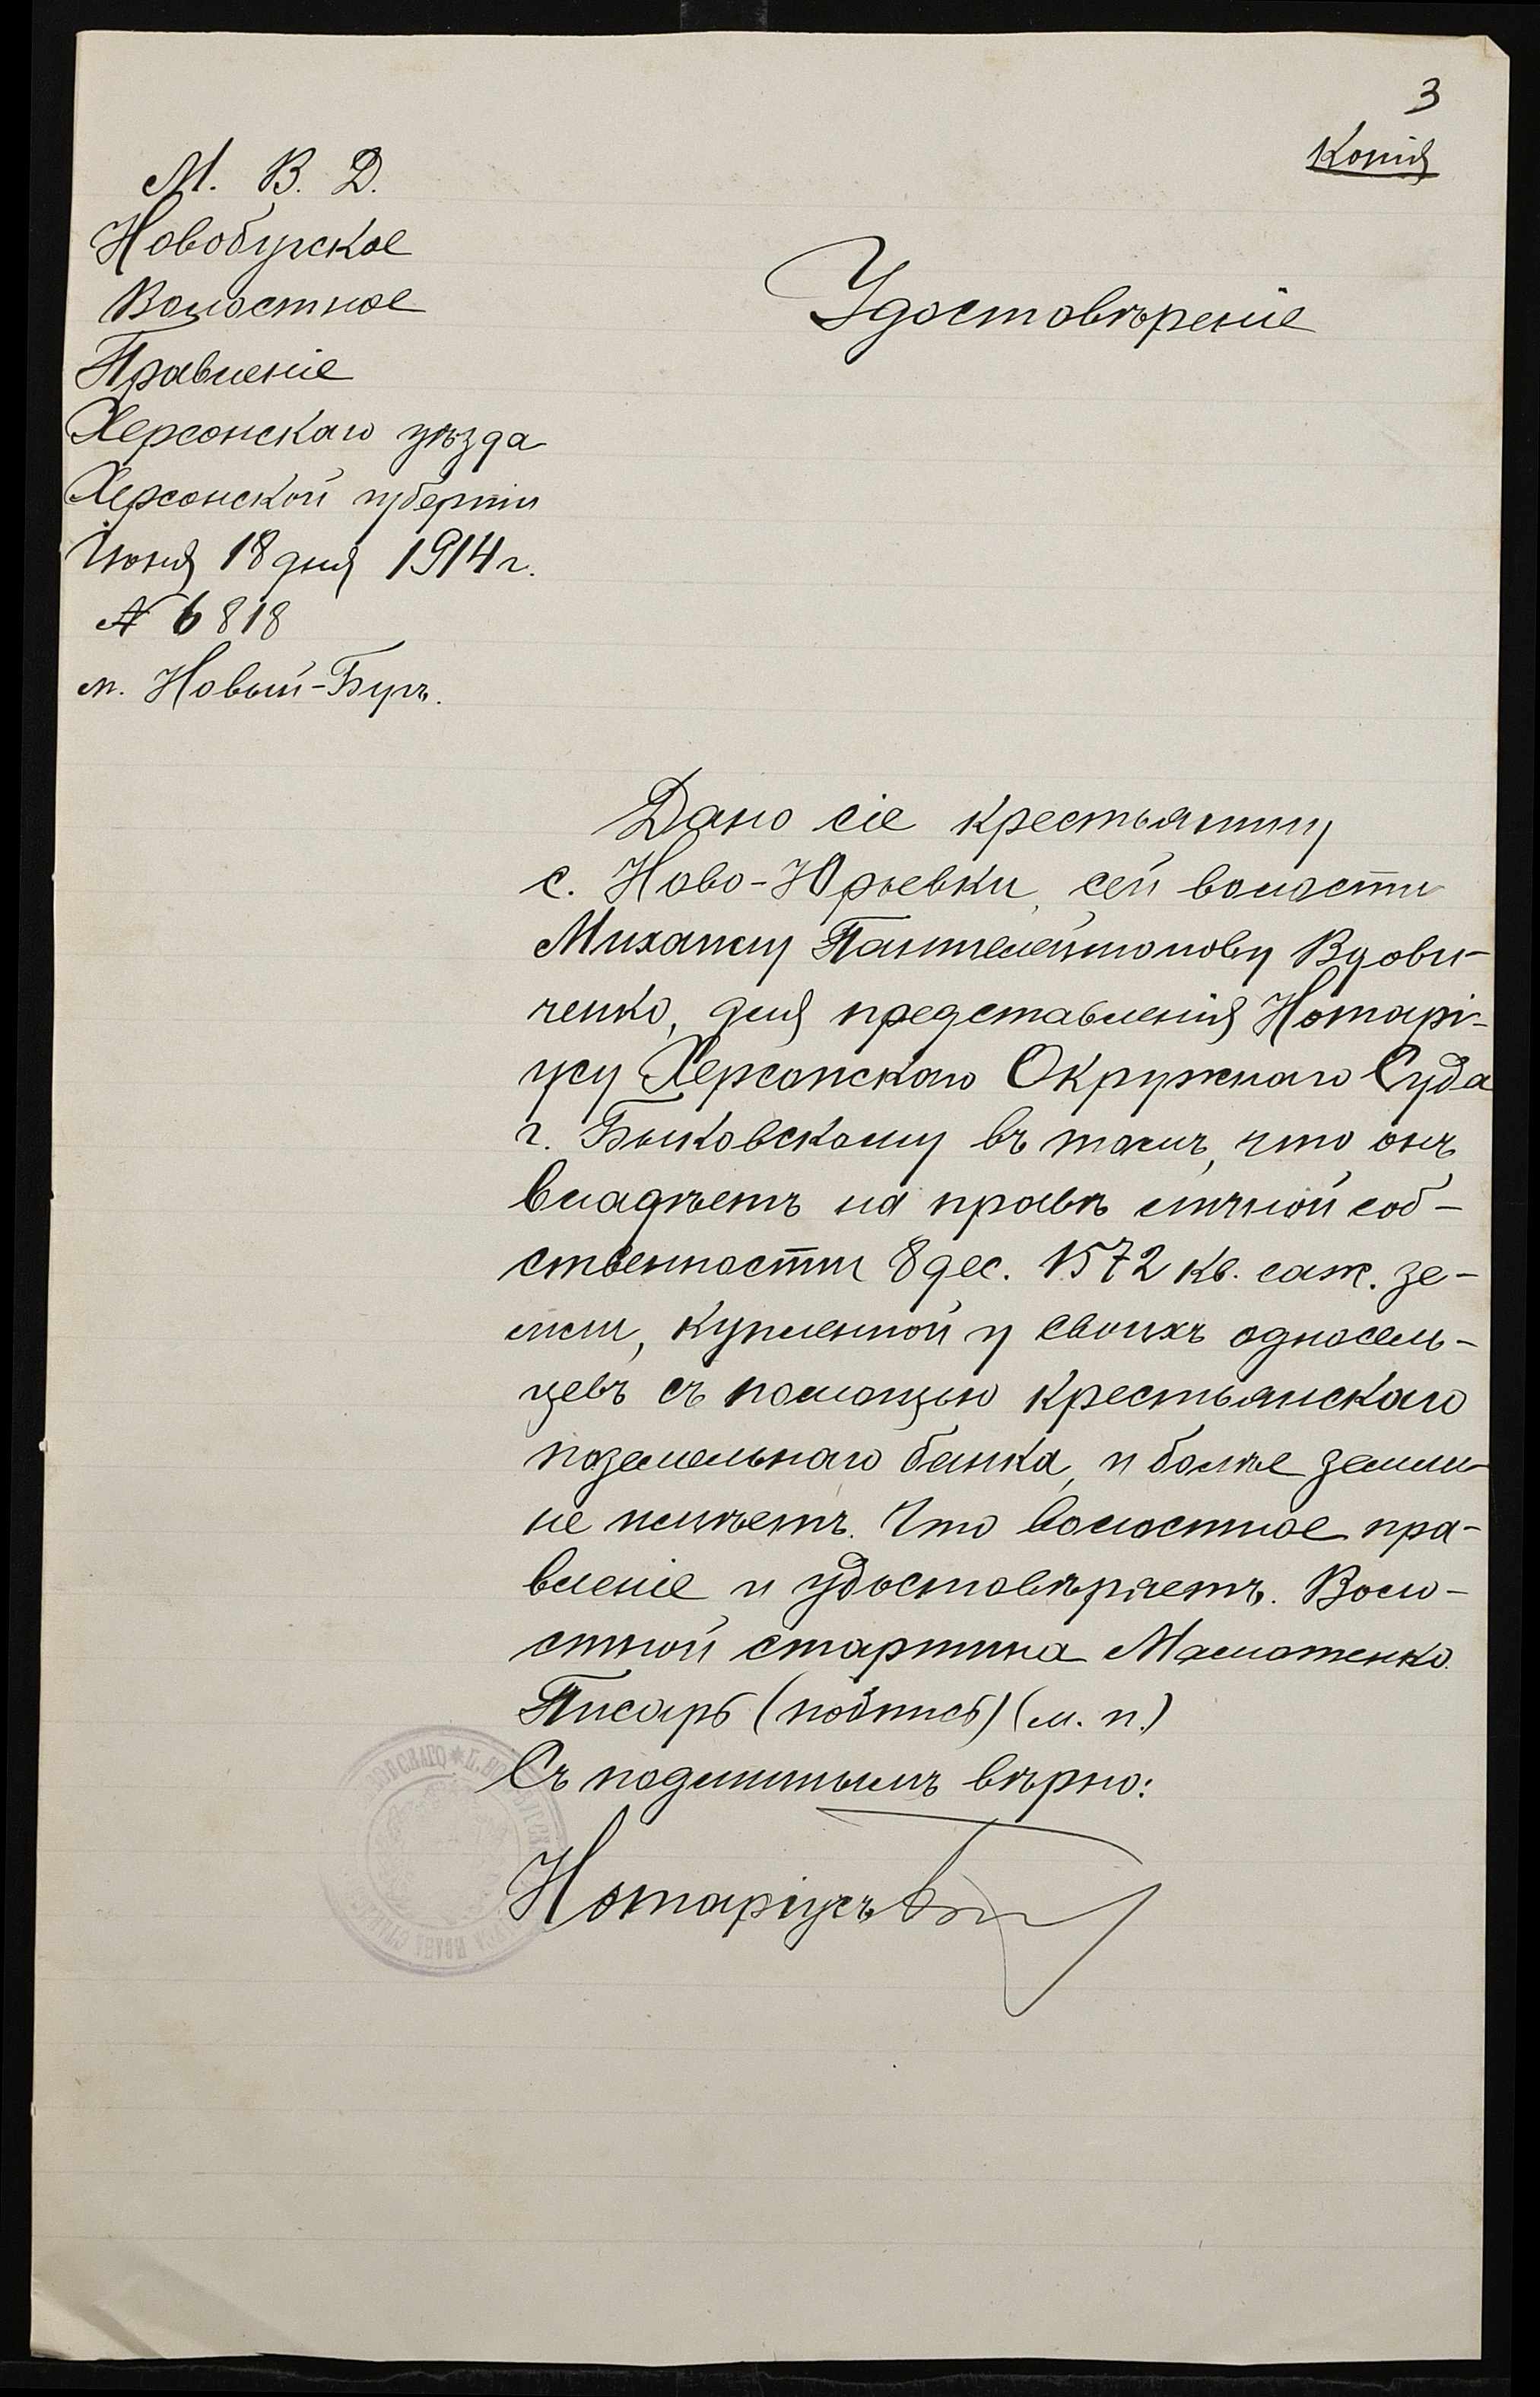 3
Копія
М. В. Д.
Новобугское
Волостное
Правленіе
Херсонскаго уѣзда
Херсонской губерніи
Іюня 18 дня 1914 г.
№ 6818
м. Новый-Бугъ.
Удостовѣреніе
Дано сіе крестьянину
с. Ново-Юрьевки, сей волости
Михаилу Пантелеймонову Вдови-
ченко, для представленія Нотарі-
усу Херсонскаго Окружнаго Суда
г. Быковскому въ томъ, что онъ
владѣетъ на правѣ личной соб-
ственности 8 дес. 1572 кв. саж. зе-
мли, купленной у своихъ односель-
цевъ съ помощью крестьянскаго
поземельнаго банка, и болѣе земли
не имѣетъ. Что волостное пра-
вленіе и удостовѣряетъ. Воло-
стной старшина
Писарь (подпись) (м. п.)
Съ подлиннымъ вѣрно:
Нотаріусъ